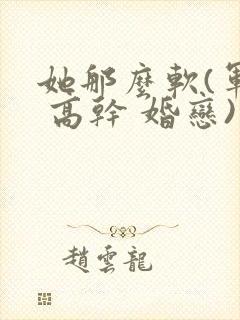 她那麼軟(軍
高幹 婚戀)
趙雲龍